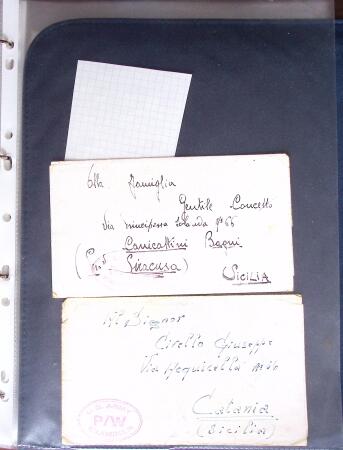 Alla famiglia
Gentile Concetto
Via principessa Iolanda nº 66
Canicattini Bagni
(Prov. Siracusa)
SICILIA
Al Signor
Cirello Giuseppe
Via Acquicella
Catania
(Sicilia)
U.S. ARMY
P/W